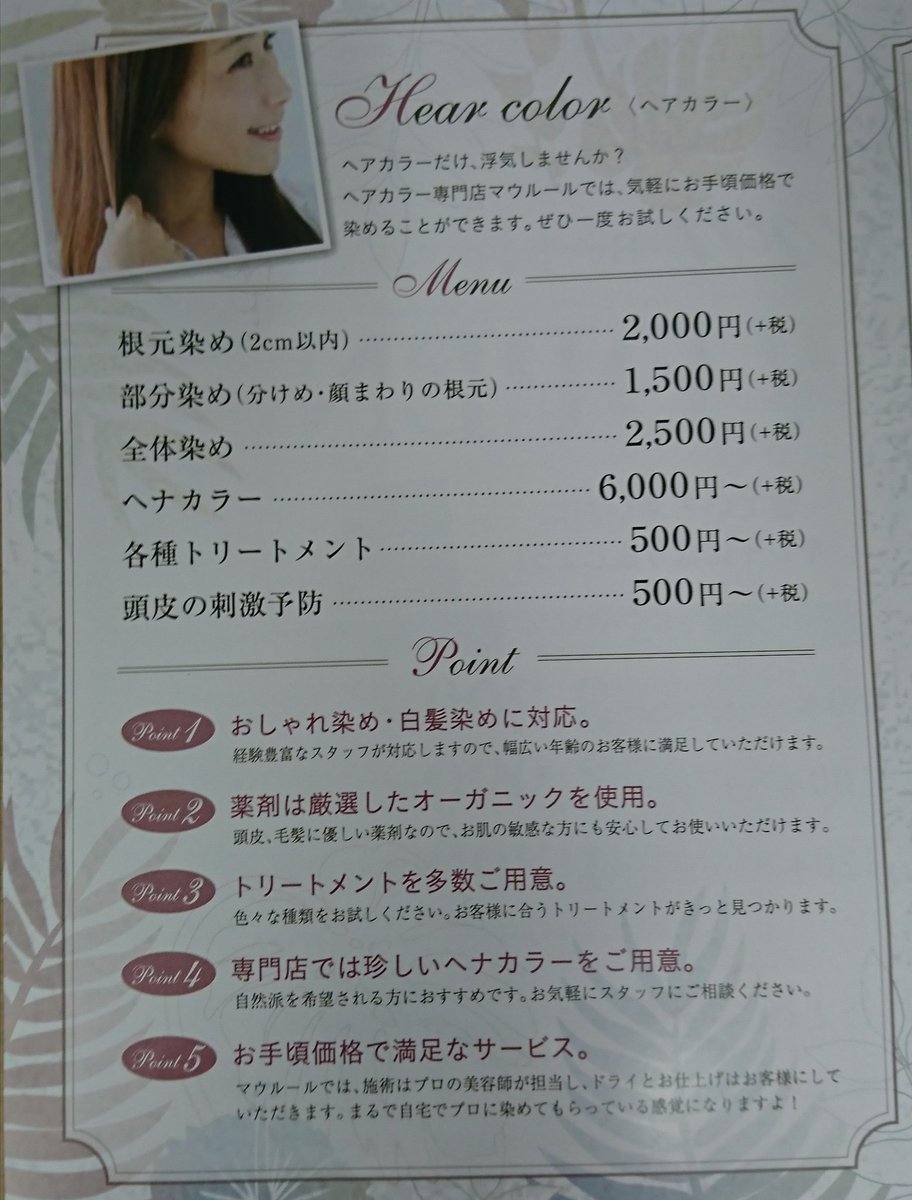 Hear color〈ヘアカラー〉
ヘアカラーだけ、浮気しませんか？
ヘアカラー専門店マウルールでは、気軽にお手頃価格で
染めることができます。ぜひ一度お試しください。
Menu
根元染め(2cm以内) 2,000円(+税)
部分染め(分けめ・顔まわりの根元) 1,500円(+税)
全体染め 2,500円(+税)
ヘナカラー 6,000円～(+税)
各種トリートメント 500円～(+税)
頭皮の刺激予防 500円～(+税)
Point
Point 1 おしゃれ染め・白髪染めに対応。
経験豊富なスタッフが対応しますので、幅広い年齢のお客様に満足していただけます。
Point 2 薬剤は厳選したオーガニックを使用。
頭皮、毛髪に優しい薬剤なので、お肌の敏感な方にも安心してお使いいただけます。
Point 3 トリートメントを多数ご用意。
色々な種類をお試しください。お客様に合うトリートメントがきっと見つかります。
Point 4 専門店では珍しいヘナカラーをご用意。
自然派を希望される方におすすめです。お気軽にスタッフにご相談ください。
Point 5 お手頃価格で満足なサービス。
マウルールでは、施術はプロの美容師が担当し、ドライとお仕上げはお客様にして
いただきます。まるで自宅でプロに染めてもらっている感覚になりますよ！